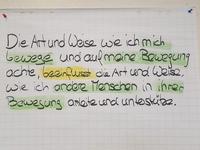 Die Art und Weise wie ich mich
bewege und auf meine Bewegung
achte, beeinflusst die Art und Weise,
wie ich andere Menschen in ihrer
Bewegung anleite und unterstütze.